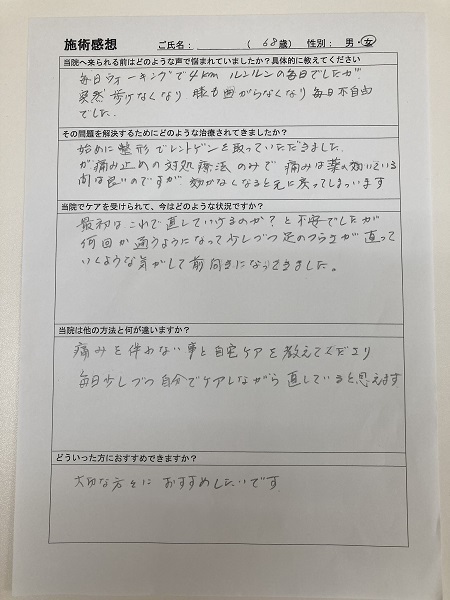 施術感想 ご氏名： （ 68 歳） 性別： 男・女
当院へ来られる前はどのような声で悩まれていましたか？具体的に教えてください
毎日ウォーキングで4km ルンルンの毎日でしたが
突然歩けなくなり 膝も曲がらなくなり毎日不自由
でした。
その問題を解決するためにどのような治療されてきましたか？
始めに整形でレントゲンを取っていただきました。
が痛み止めの対処療法のみで痛みは薬の効いている
間は良いのですが 効かなくなると元に戻ってしまいます
当院でケアを受けられて、今はどのような状況ですか？
最初はこれで直していけるのか？と不安でしたが
何回か通うようになって少しづつ足のつらさが直って
いくような気がして前向きになってきました。
当院は他の方法と何が違いますか？
痛みを伴わない事と自宅ケアを教えてくださり
毎日少しづつ自分でケアしながら直していると思えます
どういった方におすすめできますか？
大切な方々におすすめしたいです